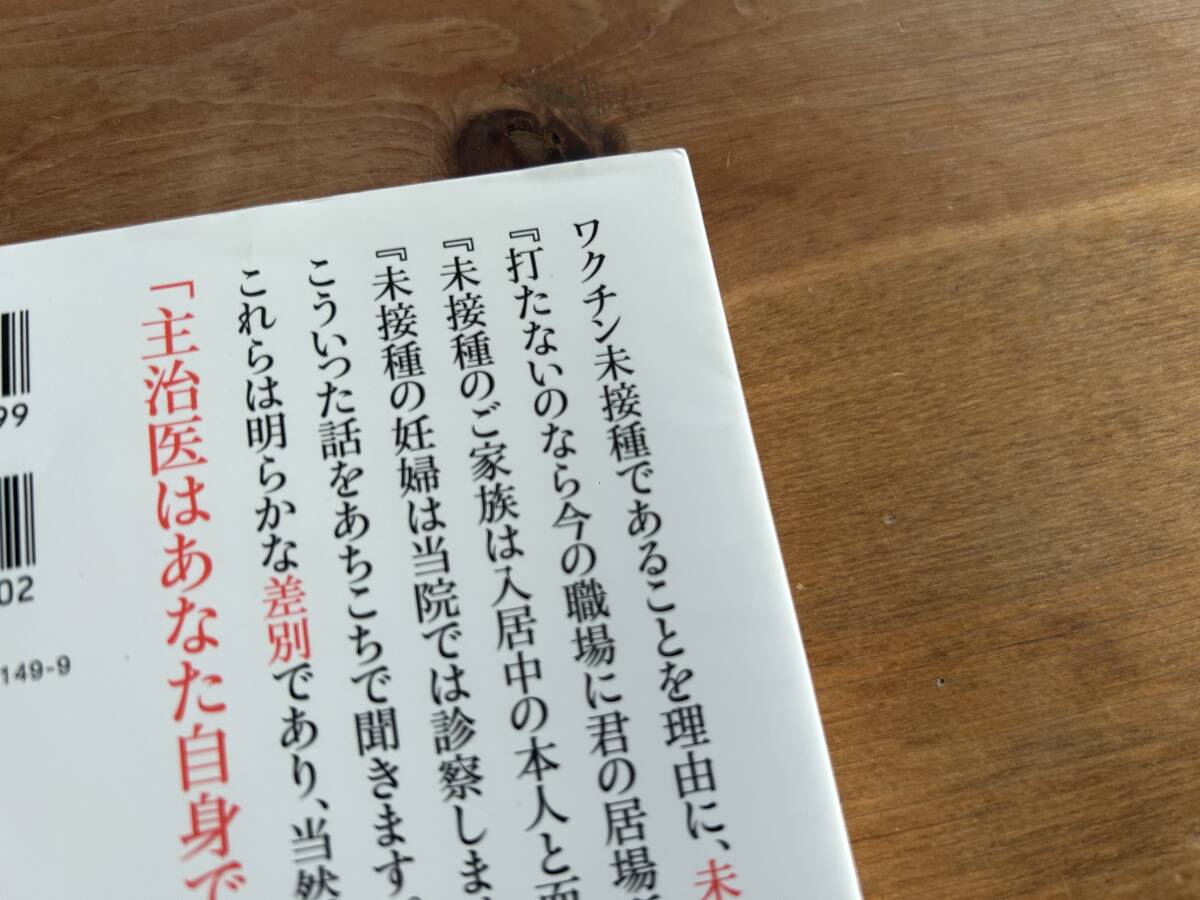 ワクチン未接種であることを理由に、未
『打たないのなら今の職場に君の居場
『未接種のご家族は入居中の本人と面
『未接種の妊婦は当院では診察しま
こういった話をあちこちで聞きます。
これらは明らかな差別であり、当然
「主治医はあなた自身で
99
02
149-9